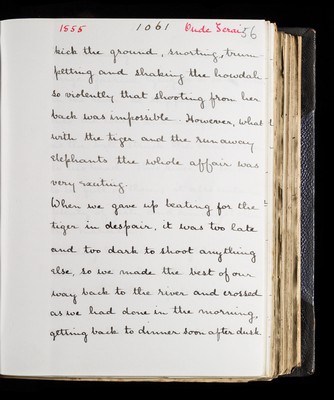 1555 1061 Oude Terai 56
kick the ground, snorting, trum-
petting and shaking the howdah
so violently that shooting from her
back was impossible. However, what
with the tiger and the runaway
elephants the whole affair was
very exciting.
When we gave up beating for the
tiger in despair, it was too late
and too dark to shoot anything
else, so we made the best of our
way back to the river and crossed
as we had done in the morning,
getting back to dinner soon after dusk